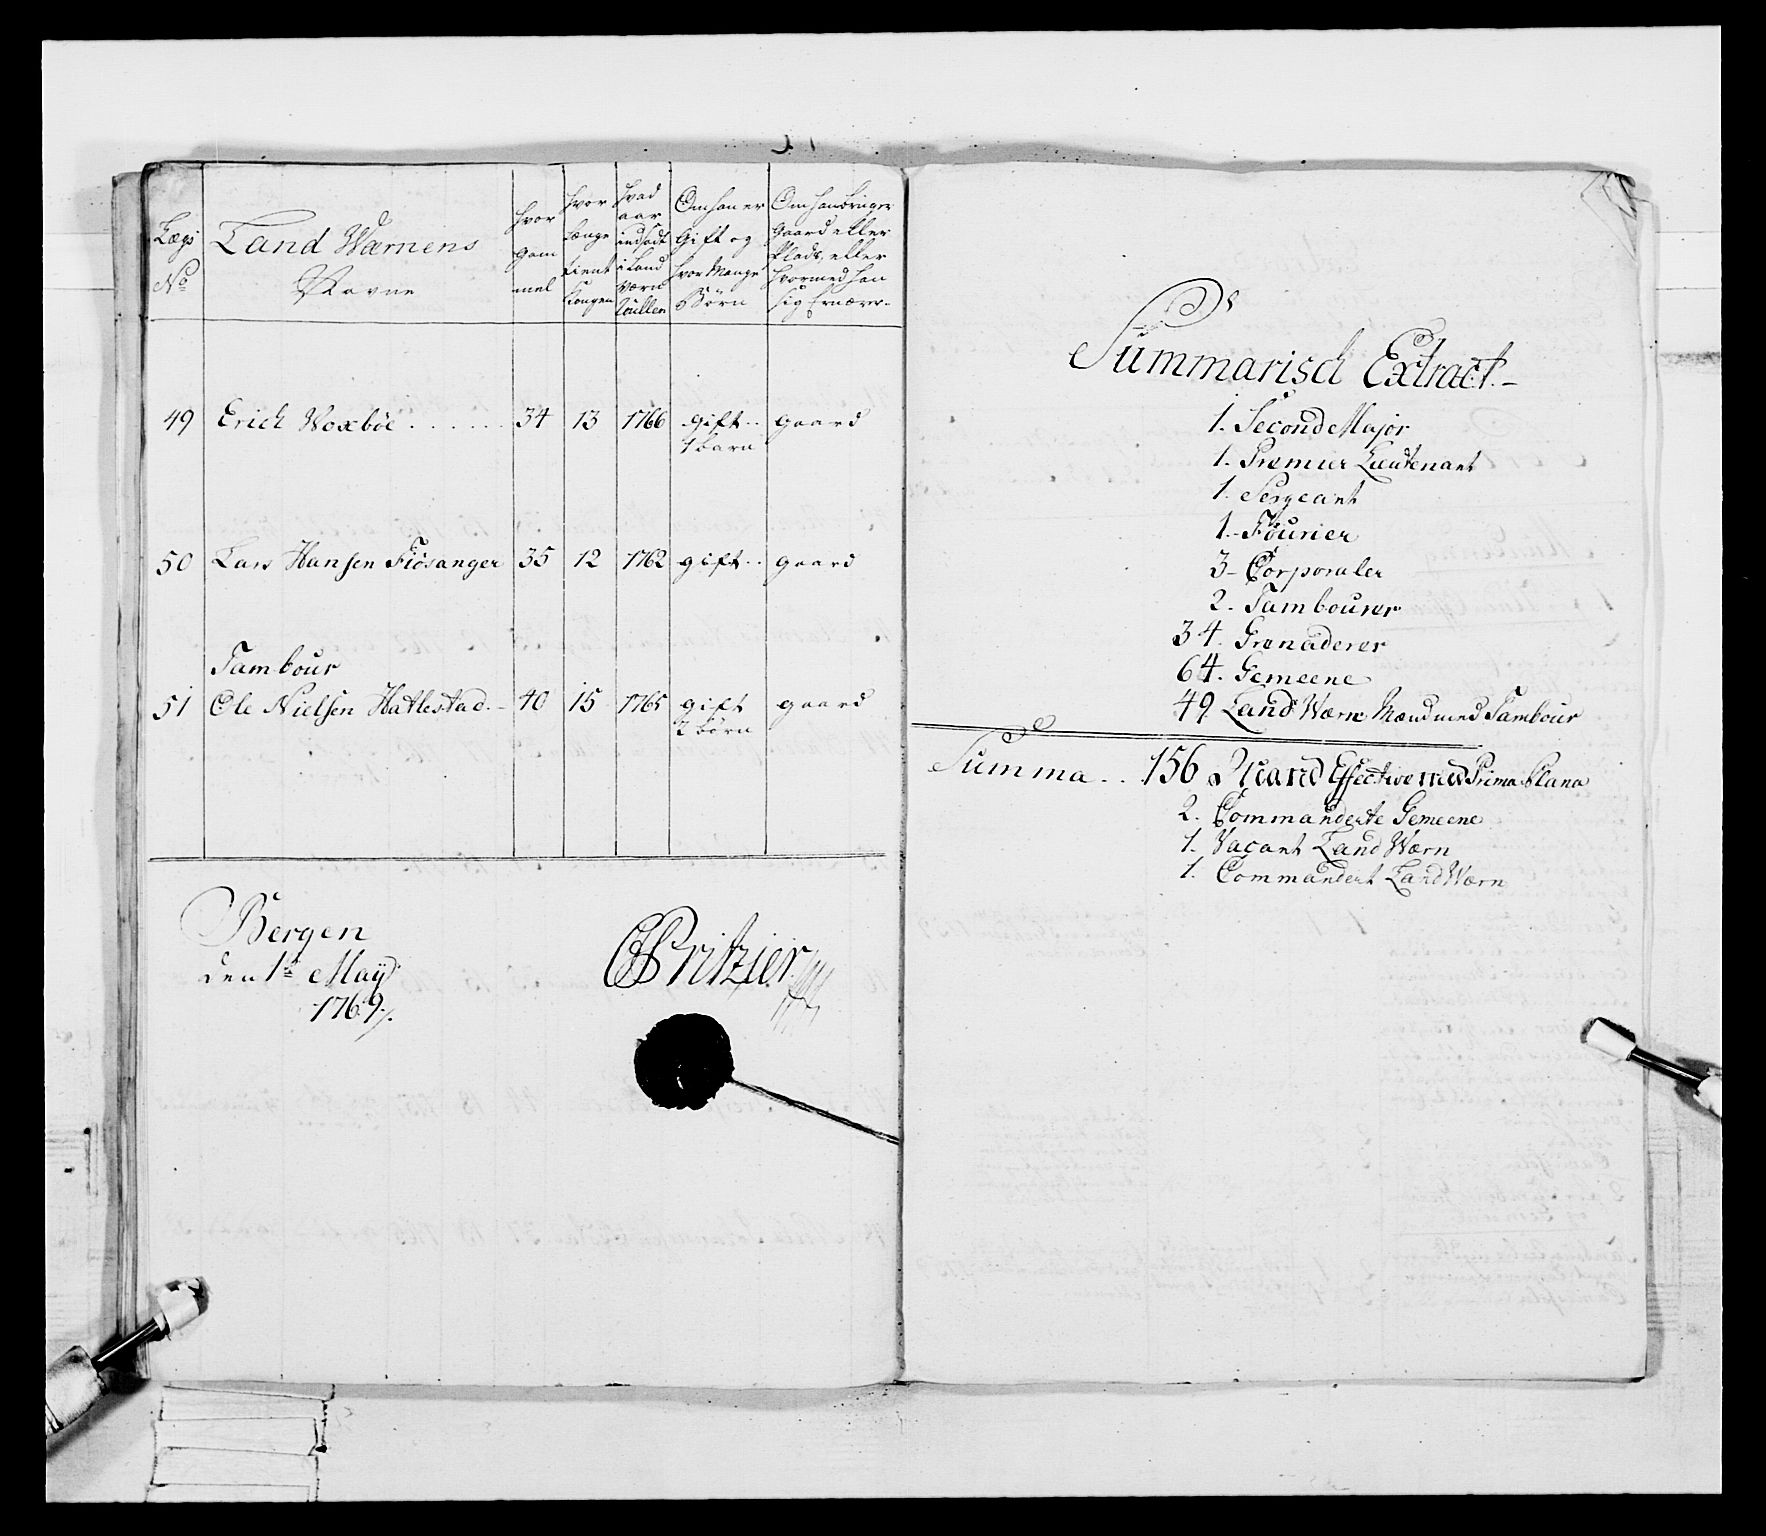 Lægs No
Land Wærnens Navne
hvor gam mel
hvor længe tient Kongen
hvad aar indsadt i Land Værn Roullen
Om han er Gift og hvor Mange Børn
Om han bruger gaard eller Plads, eller hvormed han sig Ernærer
49 Erich Woxbøe . . . . . . 34 13 1766 gift . . gaard
1 barn
50 Lars Hansen Fiøsanger 35 12 1762 gift . . gaard
Tambour
51 Ole Nielsen Hatlestad . - 40 15 1765 gift gaard
2 børn
Bergen
den 1te Maÿ
1769 ./.
Pritzier
Summarisch Extract. -
1. Second Major
1. Premier Lieutenant
1. Sergeant
1. Fourier
3 - Corporaler
2. Tambourer
34. Grenaderer
64. Gemeene
49. Land Wærn Mænd med Tambour
Summa . . 156 Mand Effective med Prima Plana
2. Commanderte Gemeene
1. Vacant Land Wærn
1. Commandert Land Wærn